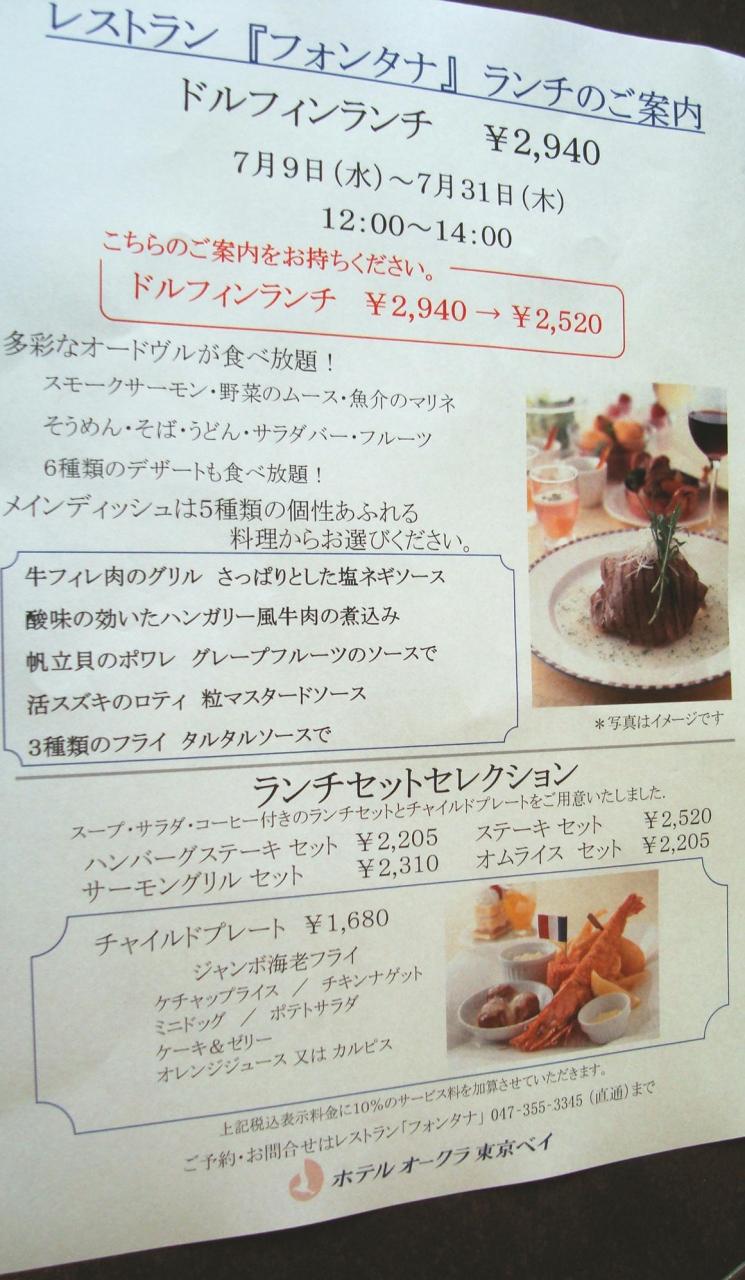 レストラン 『フォンタナ』 ランチのご案内
ドルフィンランチ ¥2,940
7月9日(水)～7月31日(木)
12:00～14:00
こちらのご案内をお持ちください。
ドルフィンランチ ¥2,940 → ¥2,520
多彩なオードヴルが食べ放題！
スモークサーモン・野菜のムース・魚介のマリネ
そうめん・そば・うどん・サラダバー・フルーツ
6種類のデザートも食べ放題！
メインディッシュは5種類の個性あふれる
料理からお選びください。
牛フィレ肉のグリル さっぱりとした塩ネギソース
酸味の効いたハンガリー風牛肉の煮込み
帆立貝のポワレ グレープフルーツのソースで
活スズキのロティ 粒マスタードソース
3種類のフライ タルタルソースで
＊写真はイメージです
ランチセットセレクション
スープ・サラダ・コーヒー付きのランチセットとチャイルドプレートをご用意いたしました.
ハンバーグステーキ セット ¥2,205 ステーキ セット ¥2,520
サーモングリル セット ¥2,310 オムライス セット ¥2,205
チャイルドプレート ¥1,680
ジャンボ海老フライ
ケチャップライス ／ チキンナゲット
ミニドッグ ／ ポテトサラダ
ケーキ＆ゼリー
オレンジジュース 又は カルピス
上記税込表示料金に10%のサービス料を加算させていただきます。
ご予約・お問合せはレストラン「フォンタナ」 047-355-3345 (直通)まで
ホテル オークラ 東京ベイ